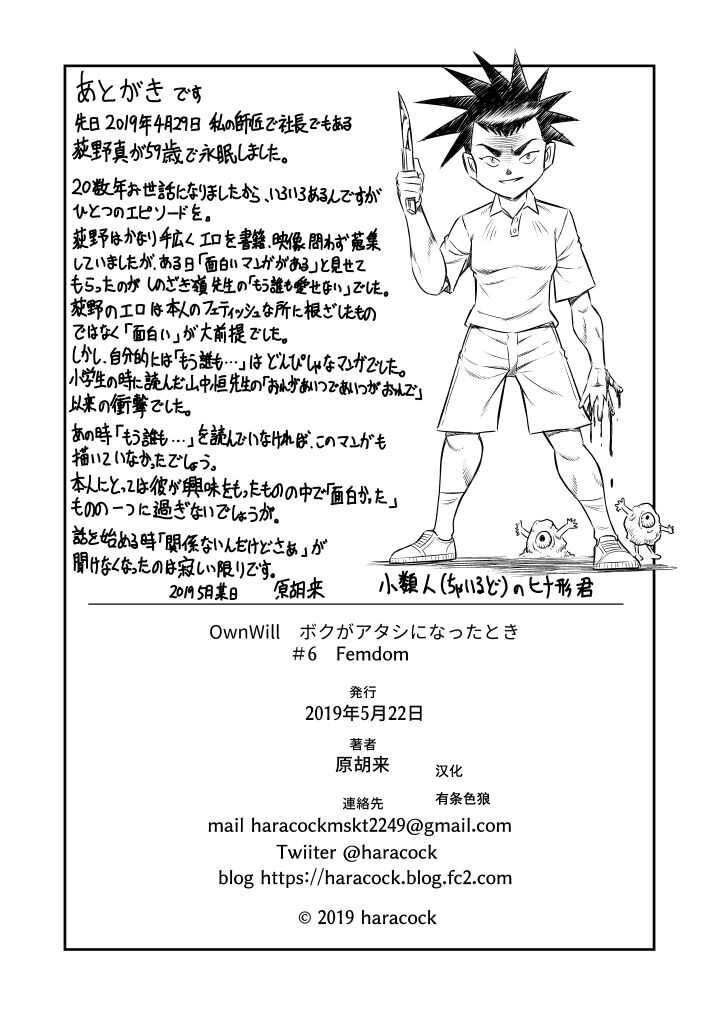 あとがきです
先日2019年4月29日 私の師匠で社長でもある
荻野真が59歳で永眠しました。
20数年お世話になりましたから、いろいろあるんですが
ひとつのエピソードを。
荻野はかなり手広くエロを書籍、映像、問わず蒐集
していましたが、ある日「面白いマンガがある」と見せて
もらったのがしのざき嶺先生の「もう誰も愛せない」でした。
荻野のエロは本人のフェティッシュな所に根ざしたもの
ではなく「面白い」が大前提でした。
しかし、自分的には「もう誰も…」はどんぴしゃなマンガでした。
小学生の時に読んだ山中恒先生の「おれがあいつであいつがおれで」
以来の衝撃でした。
あの時「もう誰も…」を読んでいなければ、このマンガも
描いていなかったでしょう。
本人にとっては彼が興味をもったものの中で「面白かった」
ものの一つに過ぎないでしょうが。
話を始める時「関係ないんだけどさぁ」が
聞けなくなったのは寂しい限りです。
2019 5月 日 原胡来
小類人(ちゃいるど)のヒナ形君
OwnWill ボクがアタシになったとき
#6 Femdom
発行
2019年5月22日
著者
原胡来
汉化
有条色狼
連絡先
mail haracockmskt2249@gmail.com
Twiiter @haracock
blog https://haracock.blog.fc2.com
© 2019 haracock